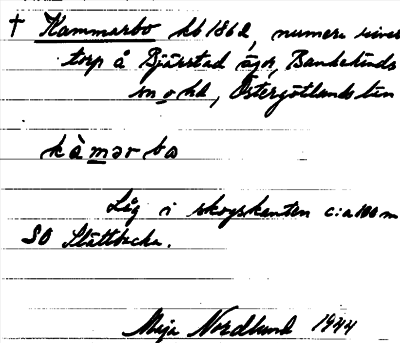 † Kammarbo kb 1862, numera river
torp å Bjärstad ägor, Bankekinds
sn o hd, Östergötlands län
kàmər bo
Låg i skogskanten c:a 100 m
SO Slättbacka.
Maja Nordlund 1944